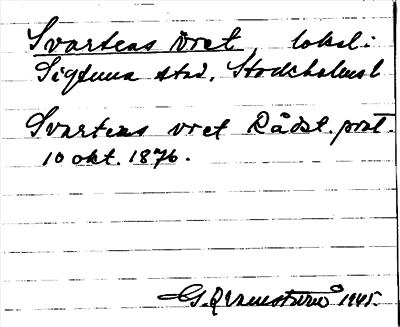 Svartens vret, lokal:
Sigtuna stad, Stockholms l
Svartens vret Rådst. prot.
10 okt. 1876.
G. 1945.